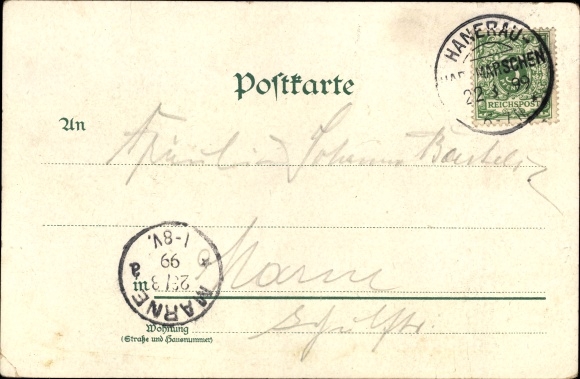 HANERAU-
HADEMARSCHEN
22.3.99
REICHSPOST
Postkarte
An
Fräulein Johanna Bartels
MARNE
a
23/3
99
7-8V.
in Marne
Schulstr.
Wohnung
(Straße und Hausnummer)